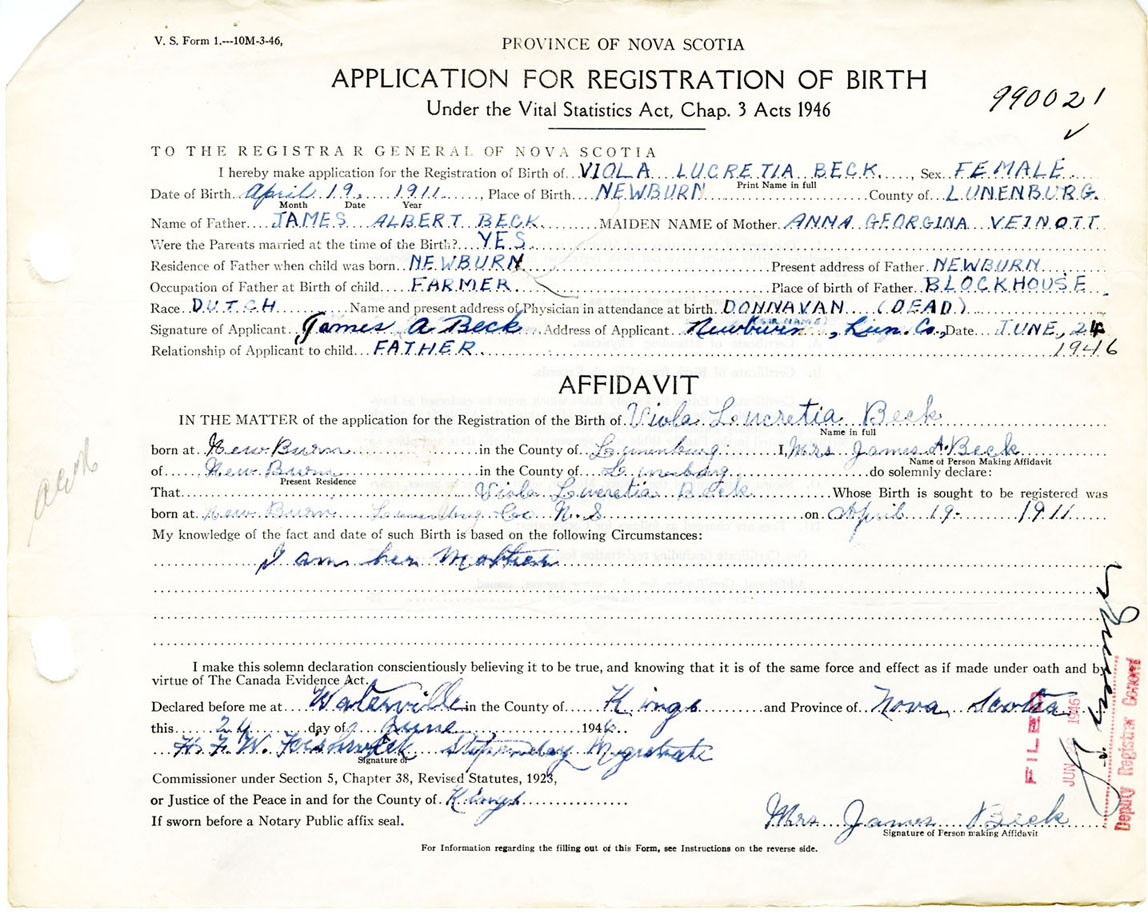 V. S. Form 1.---10M-3-46,
PROVINCE OF NOVA SCOTIA
APPLICATION FOR REGISTRATION OF BIRTH
990021
Under the Vital Statistics Act, Chap. 3 Acts 1946
TO THE REGISTRAR GENERAL OF NOVA SCOTIA
I hereby make application for the Registration of Birth of VIOLA LUCRETIA BECK, Sex FEMALE
Print Name in full
Date of Birth April 19, 1911, Place of Birth NEWBURN County of LUNENBURG.
Month Date Year
Name of Father JAMES ALBERT BECK MAIDEN NAME of Mother ANNA GEORGINA VEINOTT
Were the Parents married at the time of the Birth? YES
Residence of Father when child was born NEWBURN Present address of Father NEWBURN
Occupation of Father at Birth of child FARMER Place of birth of Father BLOCKHOUSE
Race DUTCH Name and present address of Physician in attendance at birth DONNAVAN (DEAD)
Signature of Applicant James A Beck Address of Applicant Newburn, Lun. Co., Date JUNE, 24
1946
Relationship of Applicant to child FATHER
AFFIDAVIT
IN THE MATTER of the application for the Registration of the Birth of Viola Lucretia Beck
Name in full
born at New Burn in the County of Lunenburg I, Mrs James A. Beck
Name of Person Making Affidavit
of New Burn in the County of Lunenburg do solemnly declare:
Present Residence
That Viola Lucretia Beck Whose Birth is sought to be registered was
born at New Burn Lunenburg Co N. S on April 19- 1911
My knowledge of the fact and date of such Birth is based on the following Circumstances:
I am her Mother
I make this solemn declaration conscientiously believing it to be true, and knowing that it is of the same force and effect as if made under oath and by
virtue of The Canada Evidence Act.
Declared before me at Waterville in the County of Kings and Province of Nova Scotia
this 24 day of June 1946
H. F. W. Stipendiary Magistrate
Signature of
Commissioner under Section 5, Chapter 38, Revised Statutes, 1923,
or Justice of the Peace in and for the County of Kings
If sworn before a Notary Public affix seal.
Mrs James Beck
Signature of Person making Affidavit
For Information regarding the filling out of this Form, see Instructions on the reverse side.
FILED
JUN 1946
Deputy Registrar General